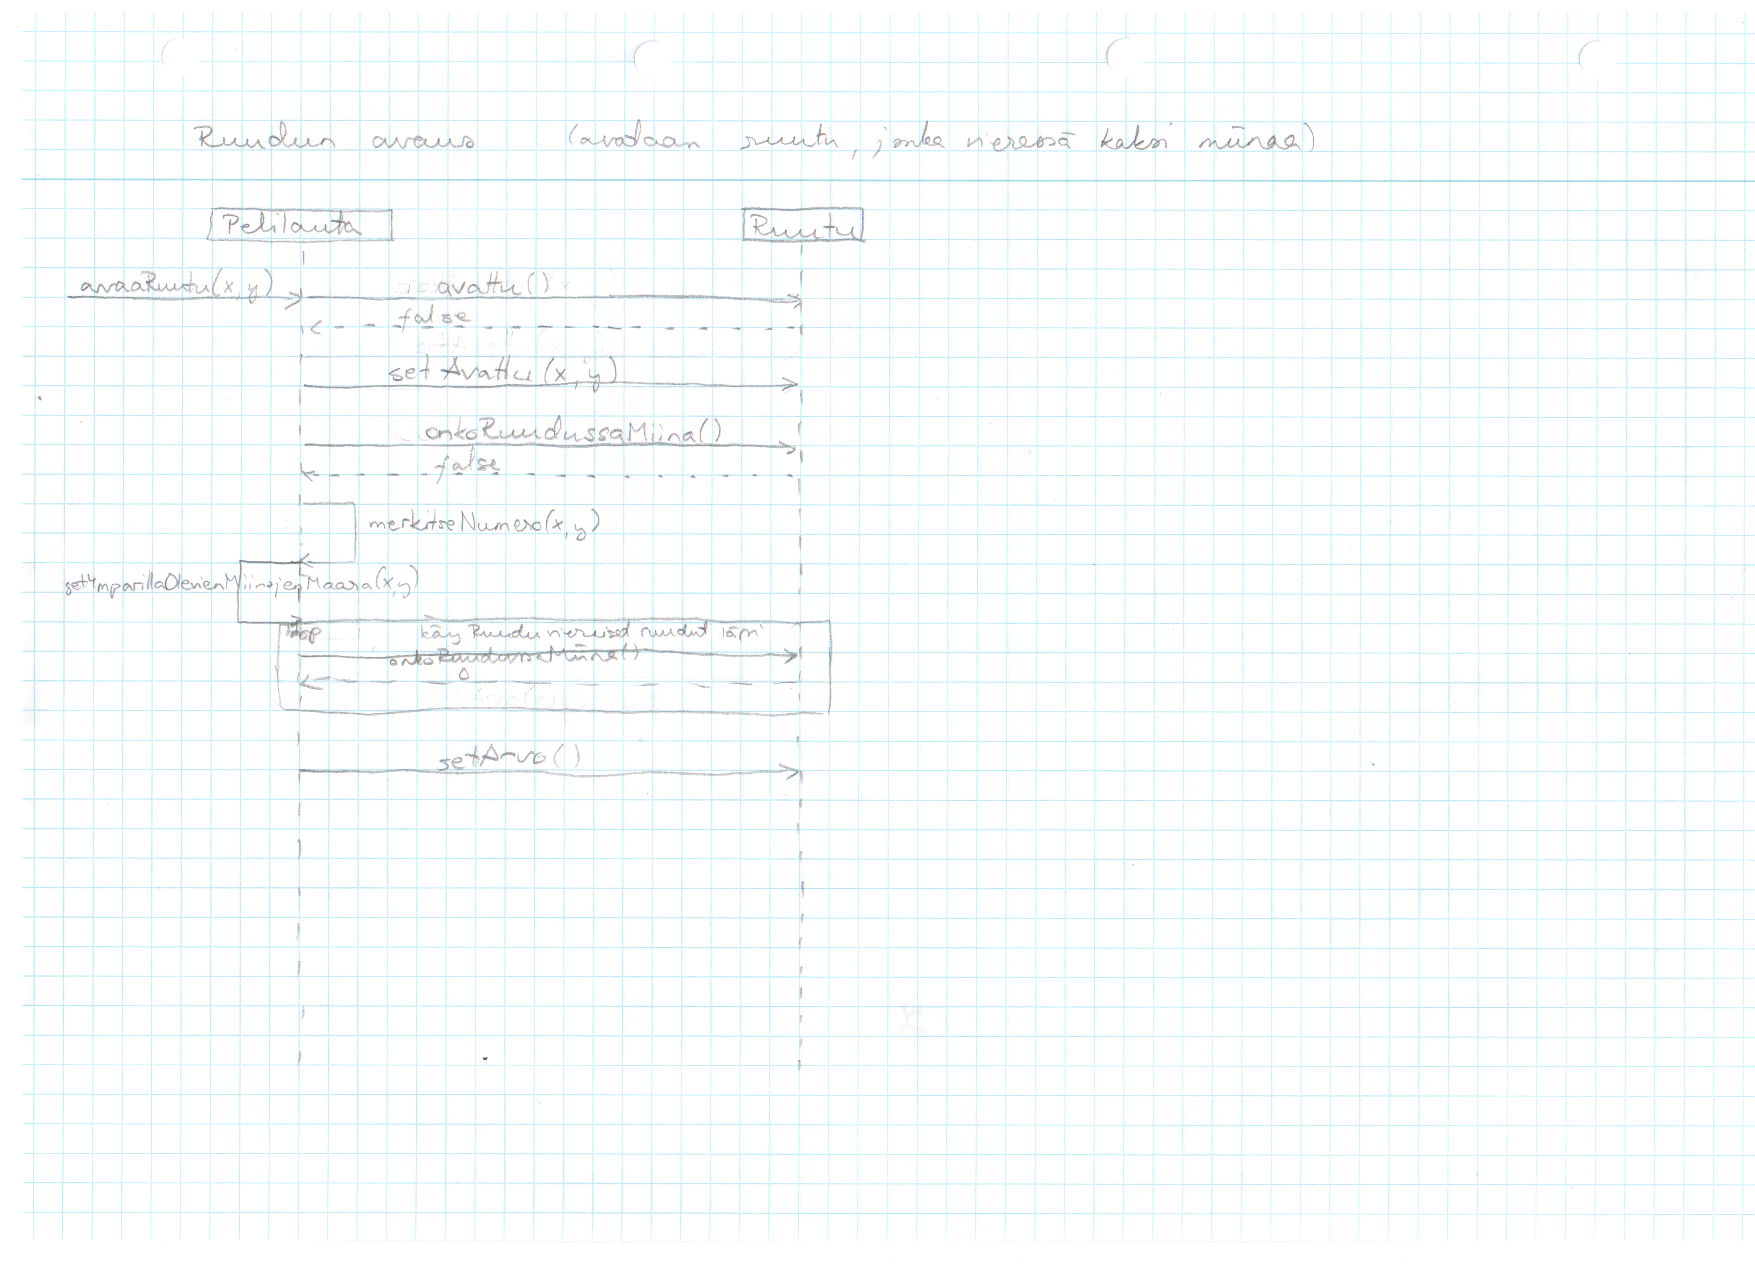 Ruudun avaus (avataan ruutu, jonka vieressä kaksi miinaa)
Pelilauta Ruutu
avaaRuutu(x,y) avattu()
false
setAvattu(x,y)
onkoRuudussaMiina()
false
merkitseNumero(x,y)
setYmparillaOlevienMiinojenMaara(x,y)
loop käy Ruudun viereiset ruudut läpi
onkoRuudussaMiina()
setArvo()